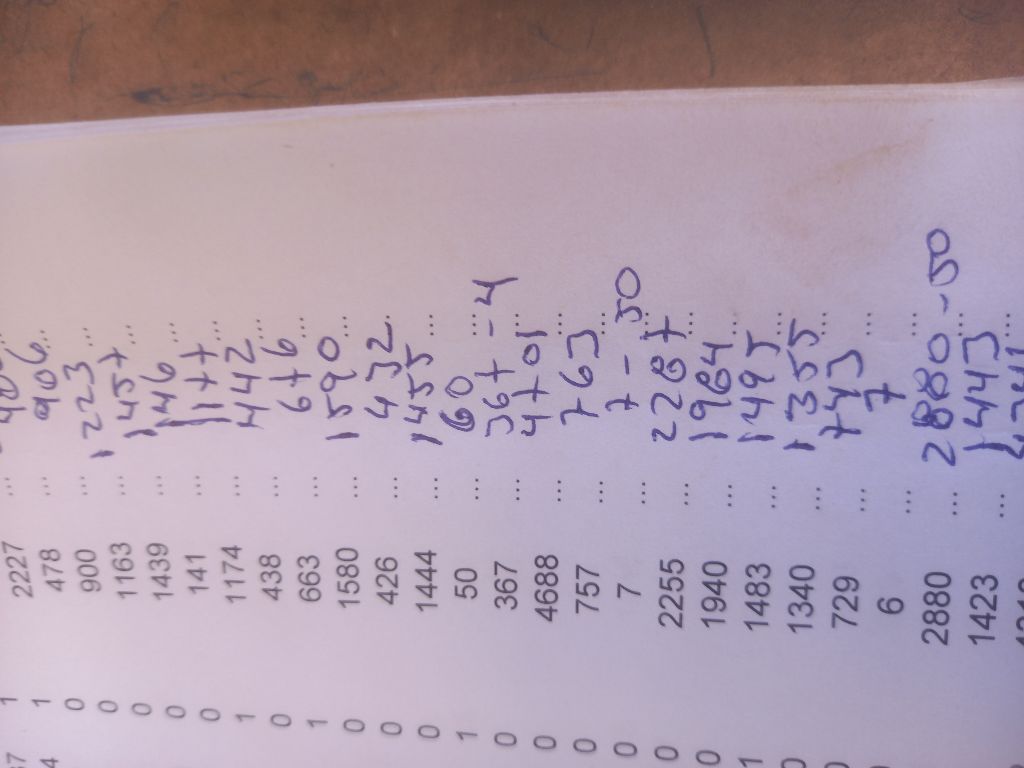 1 2227 ...
1 478 ... 906 ...
0 900 ... 1223 ...
0 1163 ... 1457 ...
0 1439 ... 146 ...
0 141 ... 1177 ...
0 1174 ... 442 ...
1 438 ... 676 ...
0 663 ... 1590 ...
1 1580 ... 432 ...
0 426 ... 1455 ...
0 1444 ... 60 ...
0 50 ... 367-4 ...
1 367 ... 4701 ...
0 4688 ... 763 ...
0 757 ... 7-30 ...
0 7 ... 2267 ...
0 2255 ... 1964 ...
0 1940 ... 1495 ...
0 1483 ... 1355 ...
1 1340 ... 743 ...
0 729 ... 7 ...
0 6 ...
2880 ... 2880-50 ...
1423 ... 1443 ...